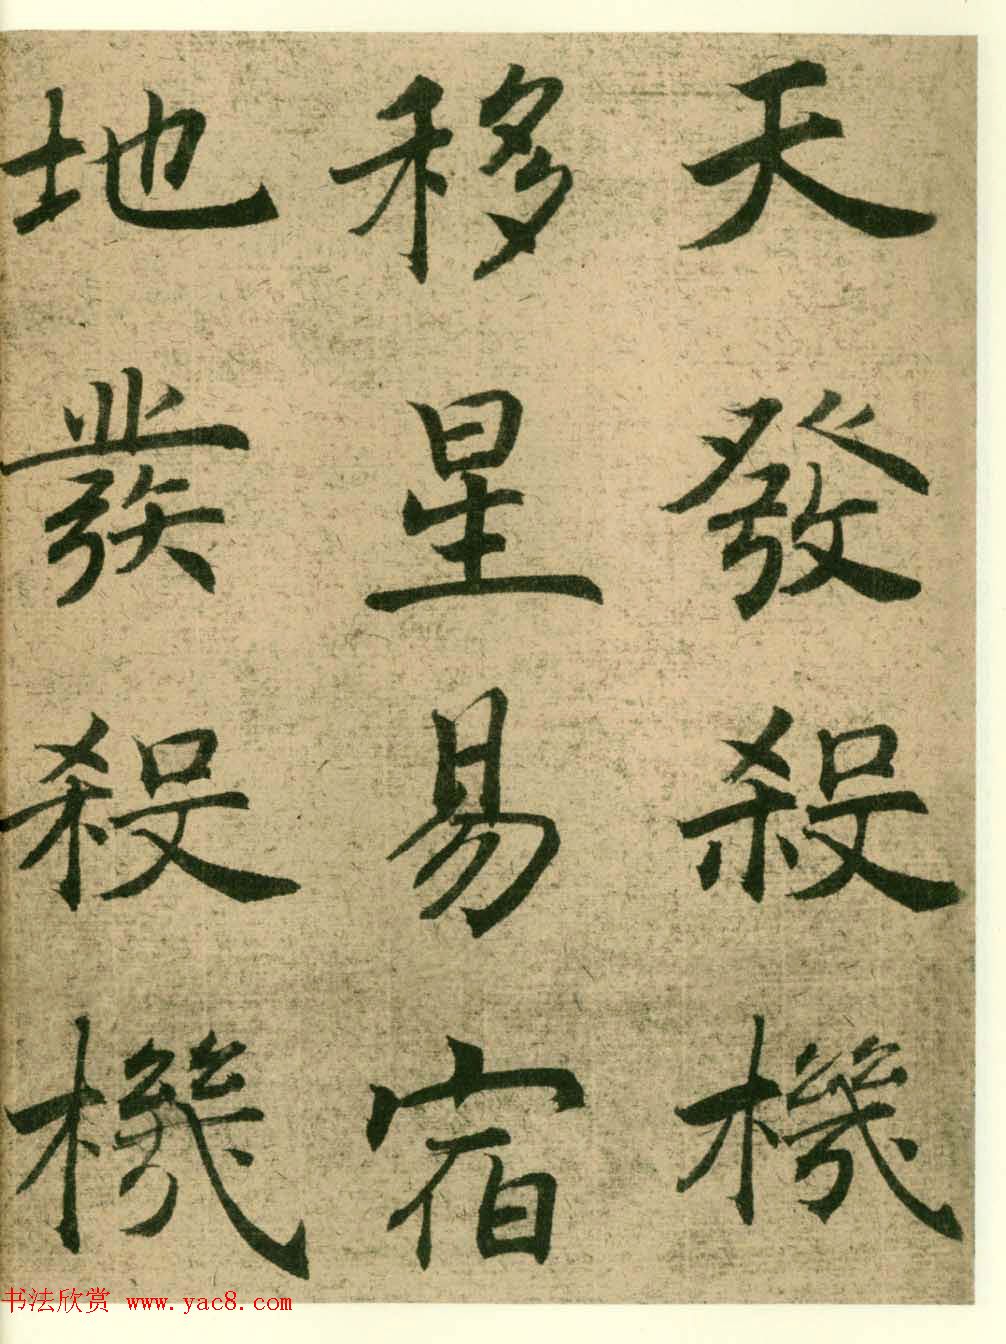 天發殺機
移星易宿
地發殺機
书法欣赏 www.yac8.com